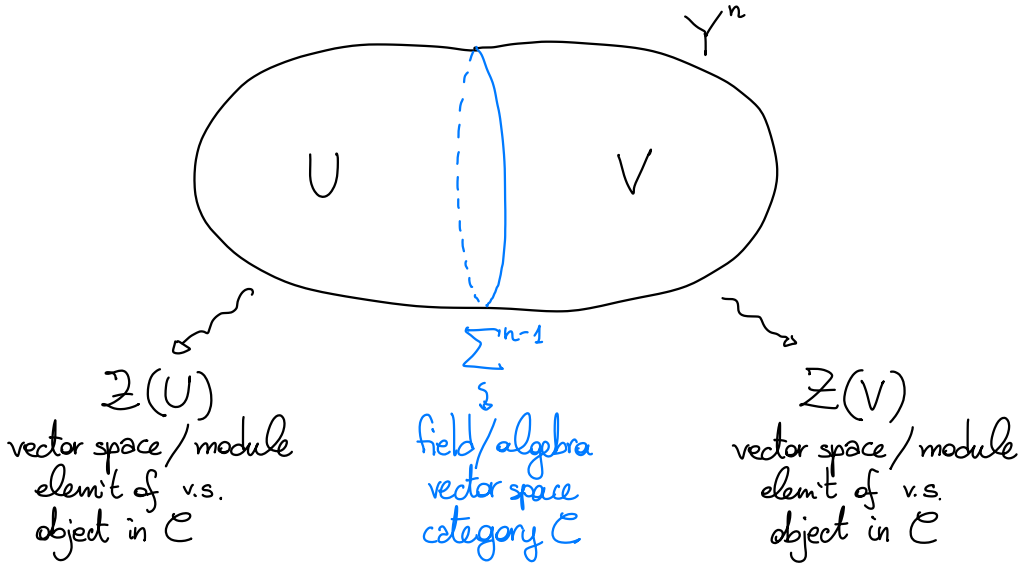 Yⁿ
U
V
Σⁿ⁻¹
Z(U)
vector space/module
elem't of v.s.
object in C
field/algebra
vector space
category C
Z(V)
vector space/module
elem't of v.s.
object in C